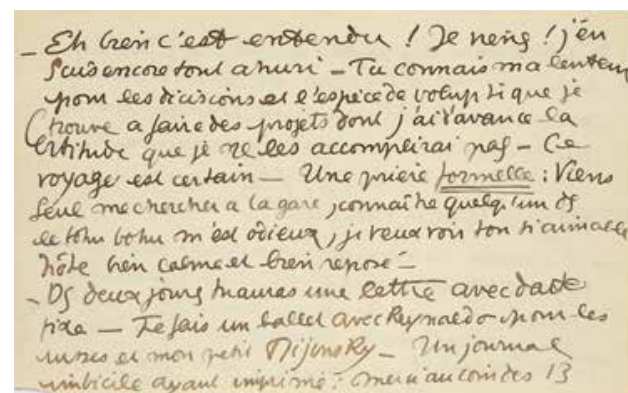 _ Eh bien c'est entendu ! Je viens ! j'en
suis encore tout ahuri _ Tu connais ma lenteur
pour les décisions et l'espèce de volupté que je
trouve a faire des projets dont j'ai l'avance la
certitude que je ne les accomplirai pas _ Ce
voyage est certain _ Une prière formelle : Viens
seul me chercher a la gare, connaître quelqu'un ds
le tohu bohu m'est odieux, je veux voir ton si aimable
hôte bien calme et bien reposé _
_ Ds deux jours tu auras une lettre avec date
fixe _ Je fais un ballet avec Reynaldo pour les
russes et mon petit Nijinsky _ Un journal
imbécile ayant imprimé : au coin des 13